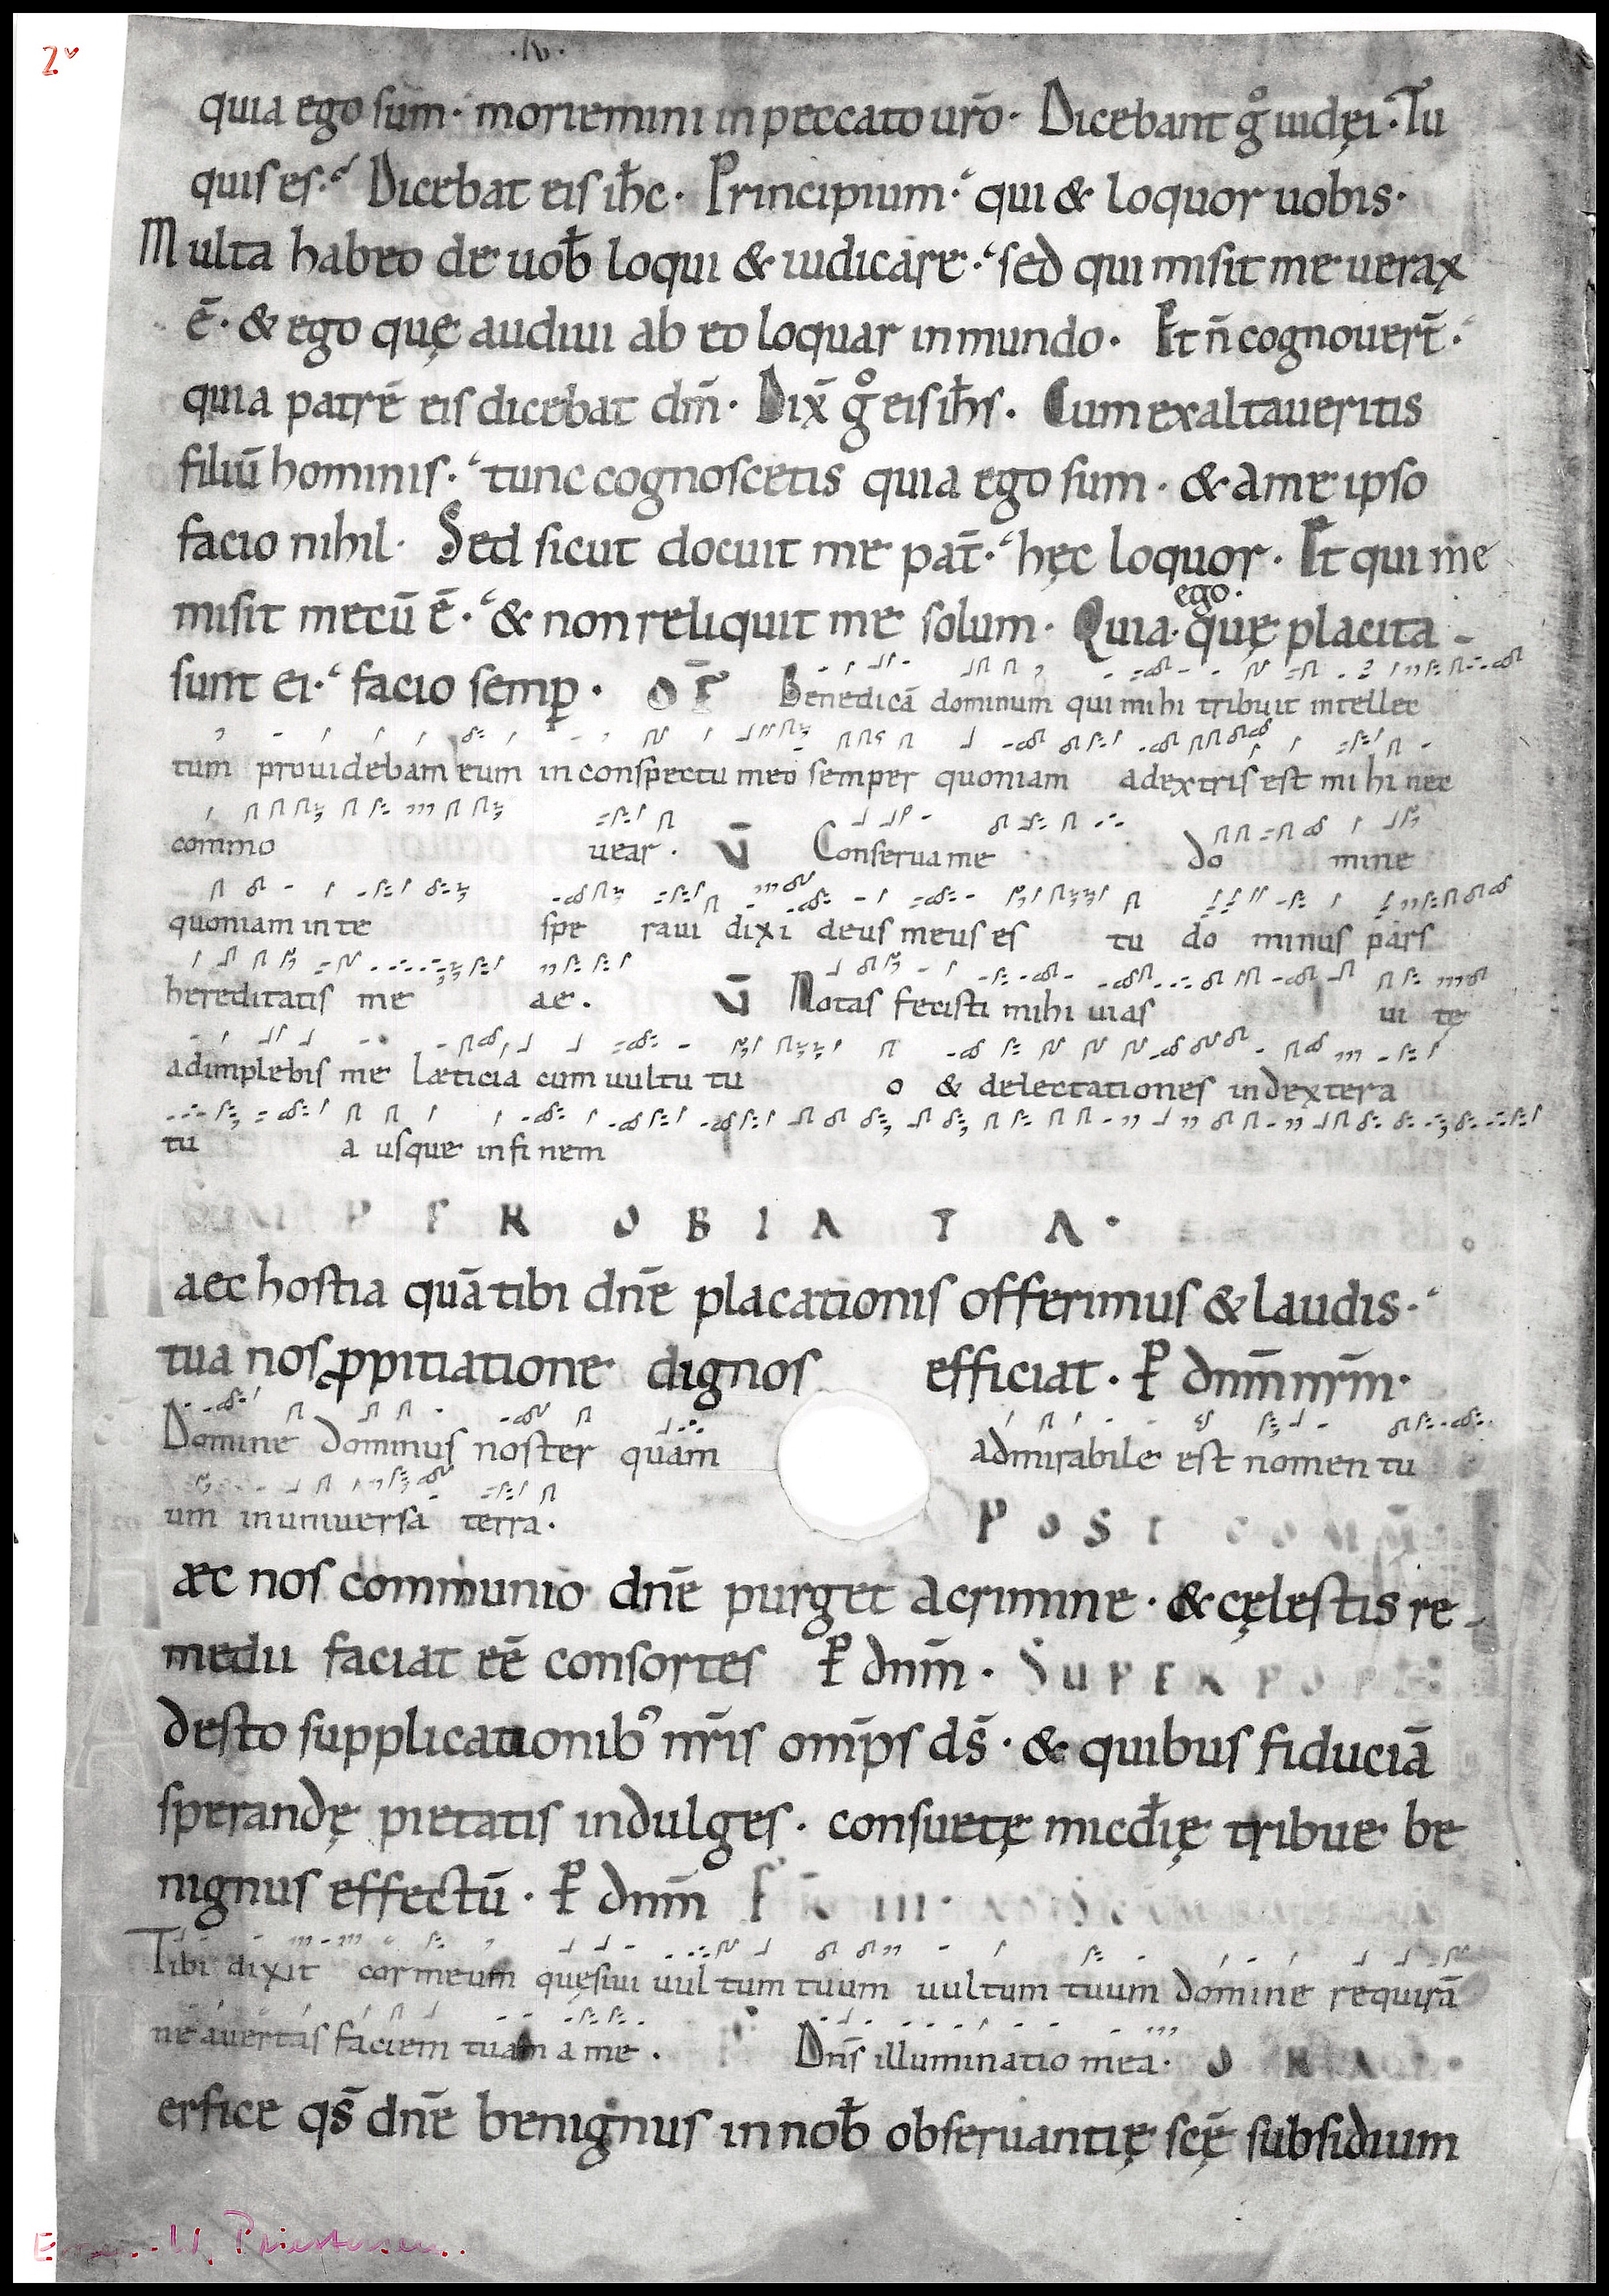 2v
·IV·
quia ego sum· moriemini in peccato ur̄o· Dicebant g° iudęi· Tu
quis es· Dicebat eis ih̄c· Principium· qui & loquor uobis·
Multa habeo de uob̄ loqui & iudicare· sed qui misit me uerax
ē· & ego quę audiui ab eo loquar in mundo· Et n̄ cognouer̄t·
quia patrē eis dicebat dm̄· Dix̄ g° eis ih̄s· Cum exaltaueritis
filiū hominis· tunc cognoscetis quia ego sum· & a me ipso
facio nihil· Sed sicut docuit me pat̄· hęc loquor· Et qui me
ego·
misit mecū ē· & non reliquit me solum· Quia· quę placita
sunt ei· facio semꝑ· OF̄ Benedicā dominum qui mihi tribuit intellec
tum prouidebam eum in conspectu meo semper quoniam a dextris est mi hi nec
commo uear· V̄ Conserua me do mine
quoniam in te spe raui dixi deus meus es tu do minus pars
hereditatis me ae· V̄ Notas fecisti mihi uias ui te
adimplebis me læticia cum uultu tu o & delectationes in dextera
tu a usque in fi nem
SUPER OBLATA·
Haec hostia quā tibi dn̄e placationis offerimus & laudis·
tua nos ꝓpitiatione dignos efficiat· P̄ dnm̄ nr̄m·
Domine dominus noster quam admirabile est nomen tu
um in uniuersa terra· POST COM̄
Haec nos communio dn̄e purget a crimine· & cęlestis re
medii faciat eē consortes P̄ dnm̄· SUPER POP
Adesto supplicationib; nr̄is omp̄s ds̄· & quibus fiduciā
sperandę pietatis indulges· consuetę mic̄dię tribue be
nignus effectū· P̄ dnm̄ FR̄ III·
Tibi dixit cor meum quęsiui uul tum tuum uultum tuum domine requirā
ne auertas faciem tuam a me· Dn̄s illuminatio mea· ORAT
Perfice qs̄ dn̄e benignus in nob̄ obseruantię scę̄ subsidium